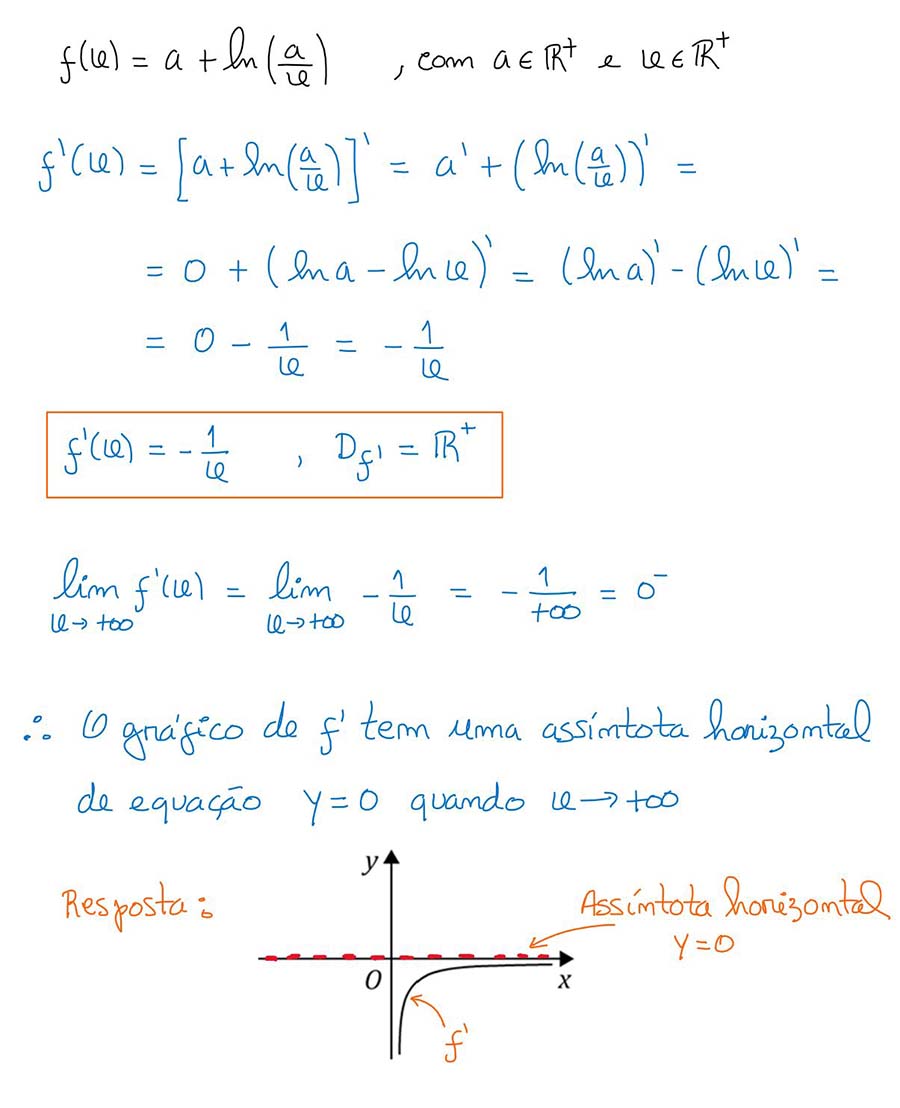 f(x) = a + ln(a/x) , com a ∈ ℝ⁺ e x ∈ ℝ⁺
f'(x) = [a + ln(a/x)]' = a' + (ln(a/x))' =
= 0 + (ln a − ln x)' = (ln a)' − (ln x)' =
= 0 − 1/x = − 1/x
f'(x) = − 1/x , D_f' = ℝ⁺
lim_{x→+∞} f'(x) = lim_{x→+∞} − 1/x = − 1/+∞ = 0⁻
∴ O gráfico de f' tem uma assíntota horizontal
de equação y = 0 quando x → +∞
y
Resposta:
Assíntota horizontal
y = 0
O
x
f'